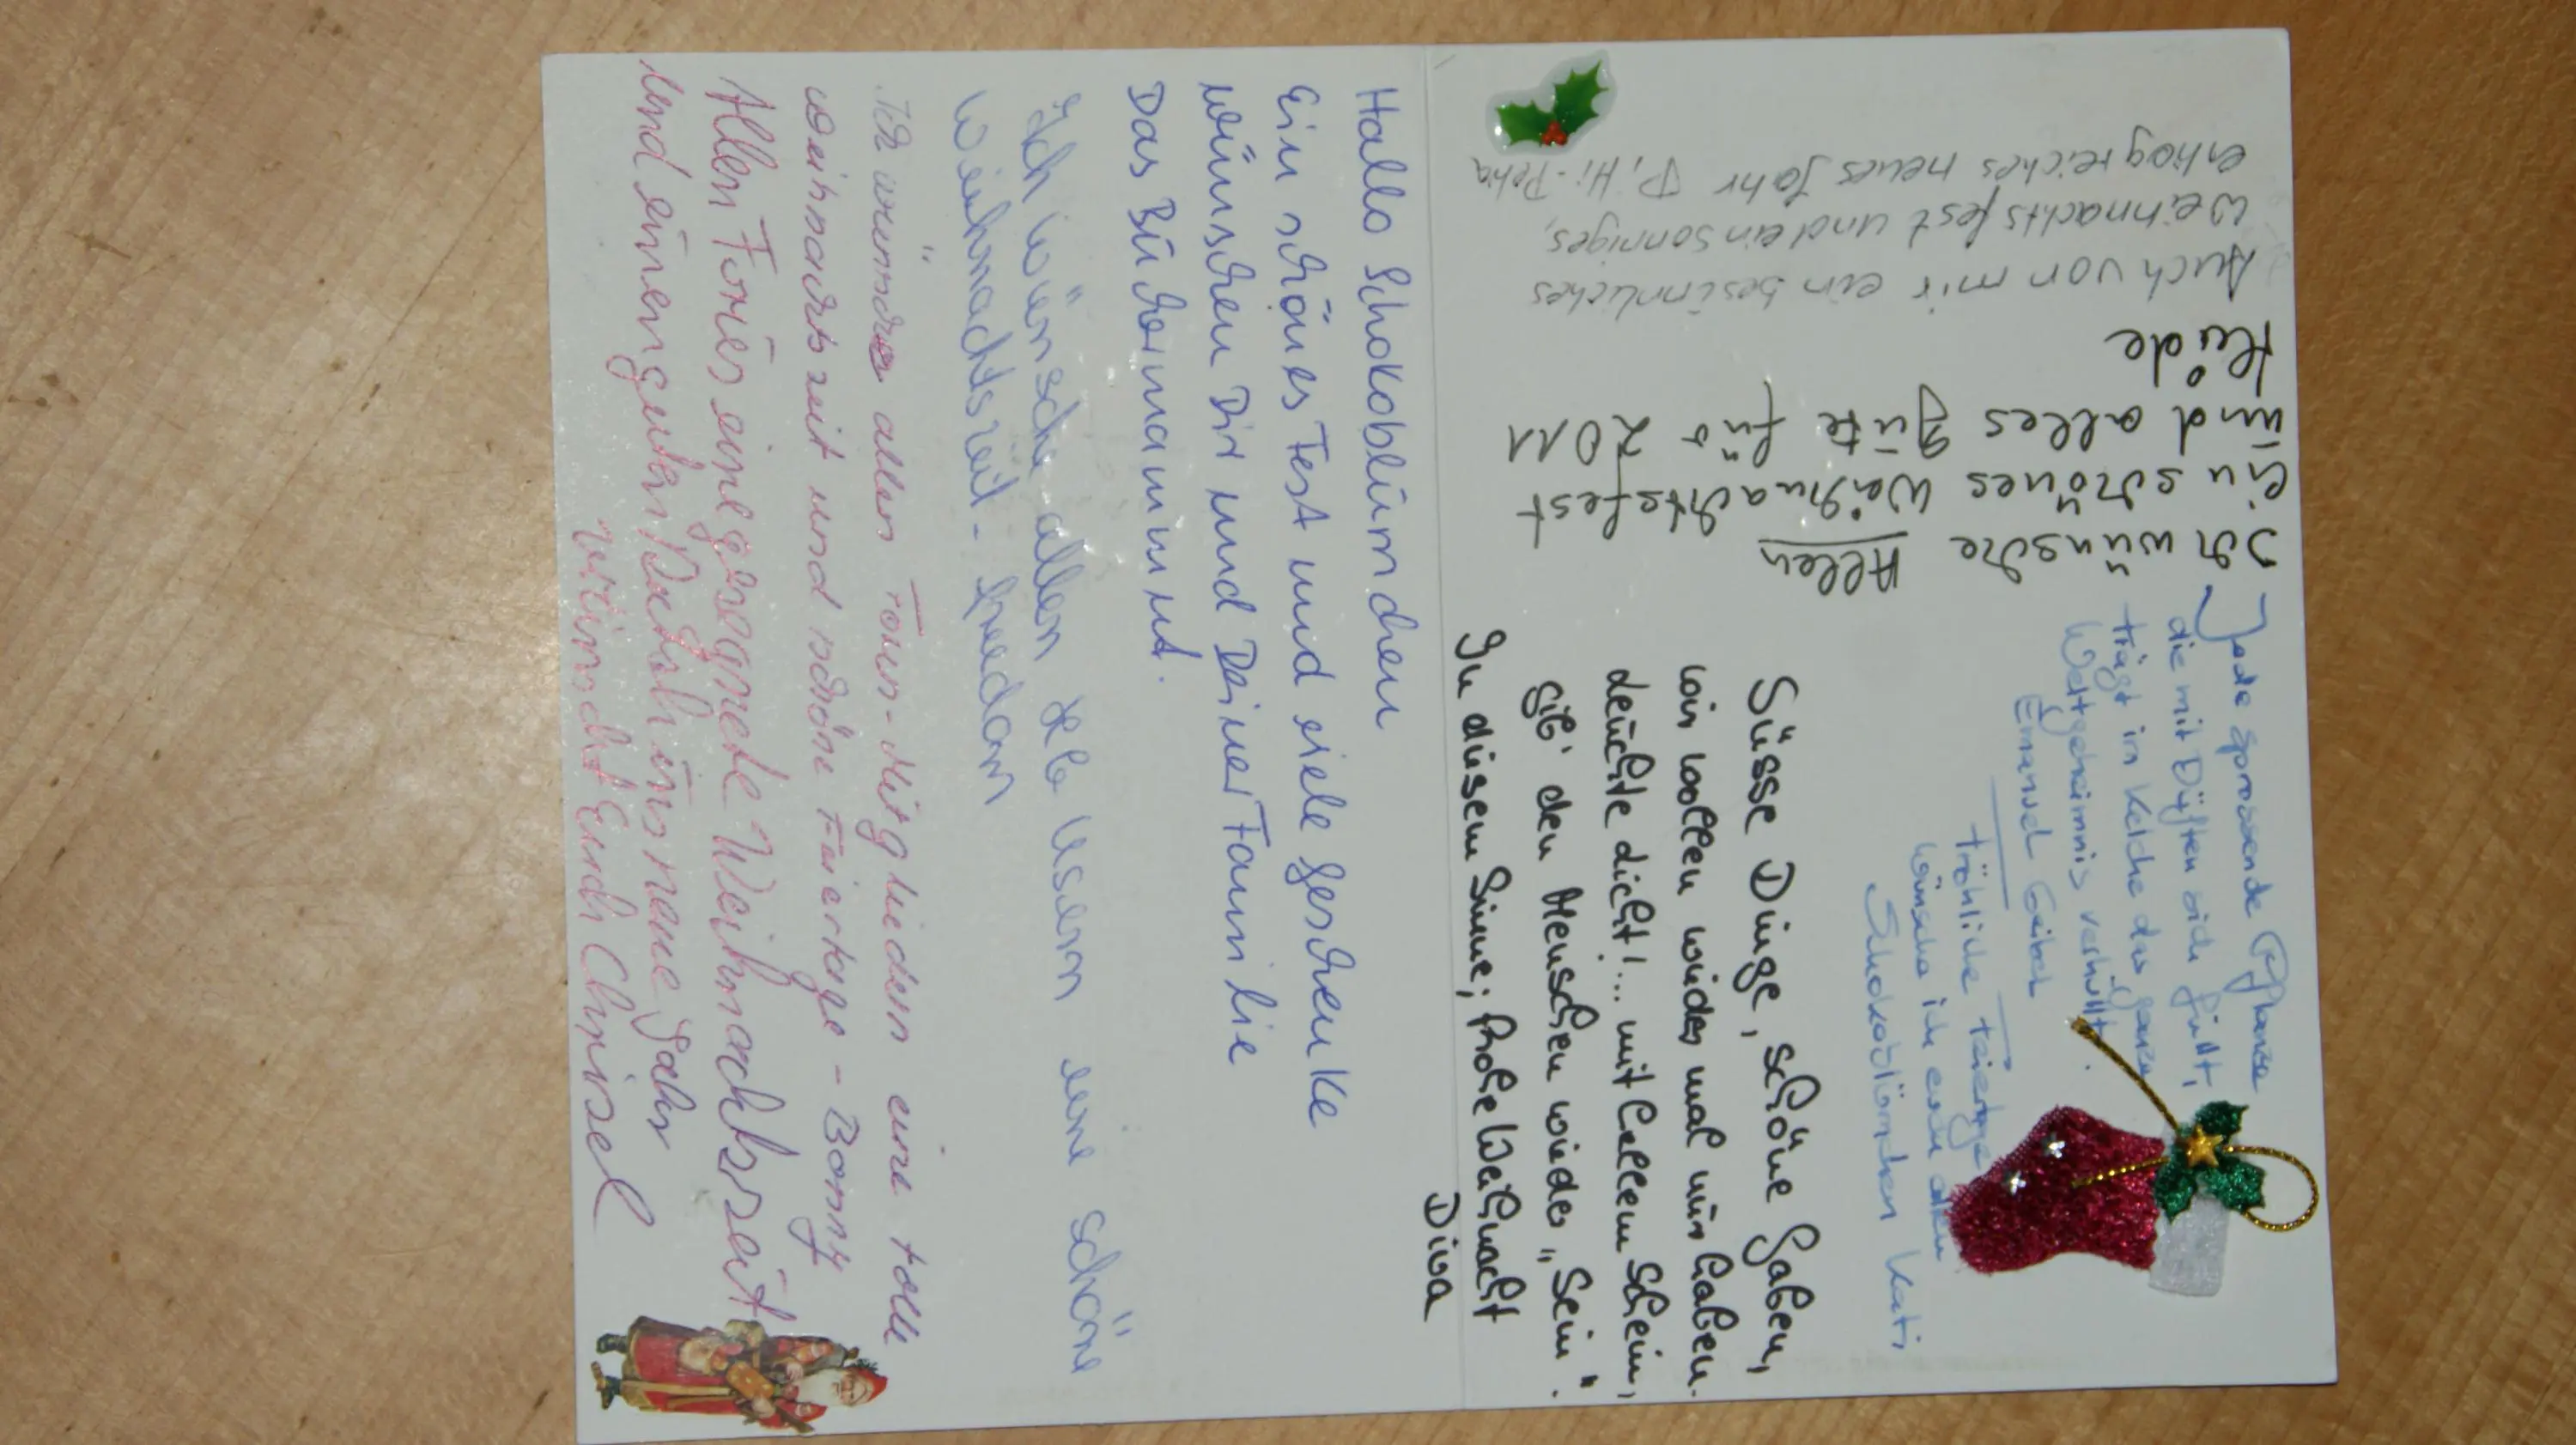 Hallo Schokoblümchen
Ein schönes Fest und viele Geschenke
wünschen Dir und Deiner Familie
Das Büchermammut.
Ich wünsche allen
lesern ene schöne
Weihnachtszeit - 
Ich wünsche allen Foren-Mitgliedern eine tolle
Weihnachtszeit und schöne Feiertage - Bonny
Allen Fories eine gesegnete Weihnachtszeit
und einen guten Rutsch ins neue Jahr
wünscht Euch Chrisel
Auch von mir ein besinnliches
Weihnachtsfest und ein sonniges,
erfolgreiches neues Jahr
Ich wünsche Allen
Ein schönes Weihnachtsfest
und alles Gute für 2011
Heide
Jede sprossende Pflanze
die mit Düften sich füllt,
trägt in Kelche das ganze
Weltgeheimnis verhüllt.
Emanuel Geibel
Fröhliche Feiertage
wünsche ich euch allen
Schokoblümchen Kati
Süsse Dinge, schöne Gaben,
wir wollen wieder mal nur haben.
Leuchte Licht!... mit hellem Schein,
gib' den Menschen wieder "Sein".
In diesem Sinne; Frohe Weihnacht
Diva